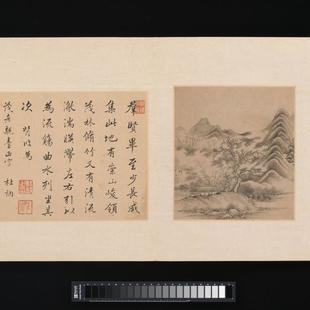 羣賢畢至少長咸
集此地有崇山峻領
茂林脩竹又有清流
激湍暎帶左右引以
為流觴曲水列坐其
次